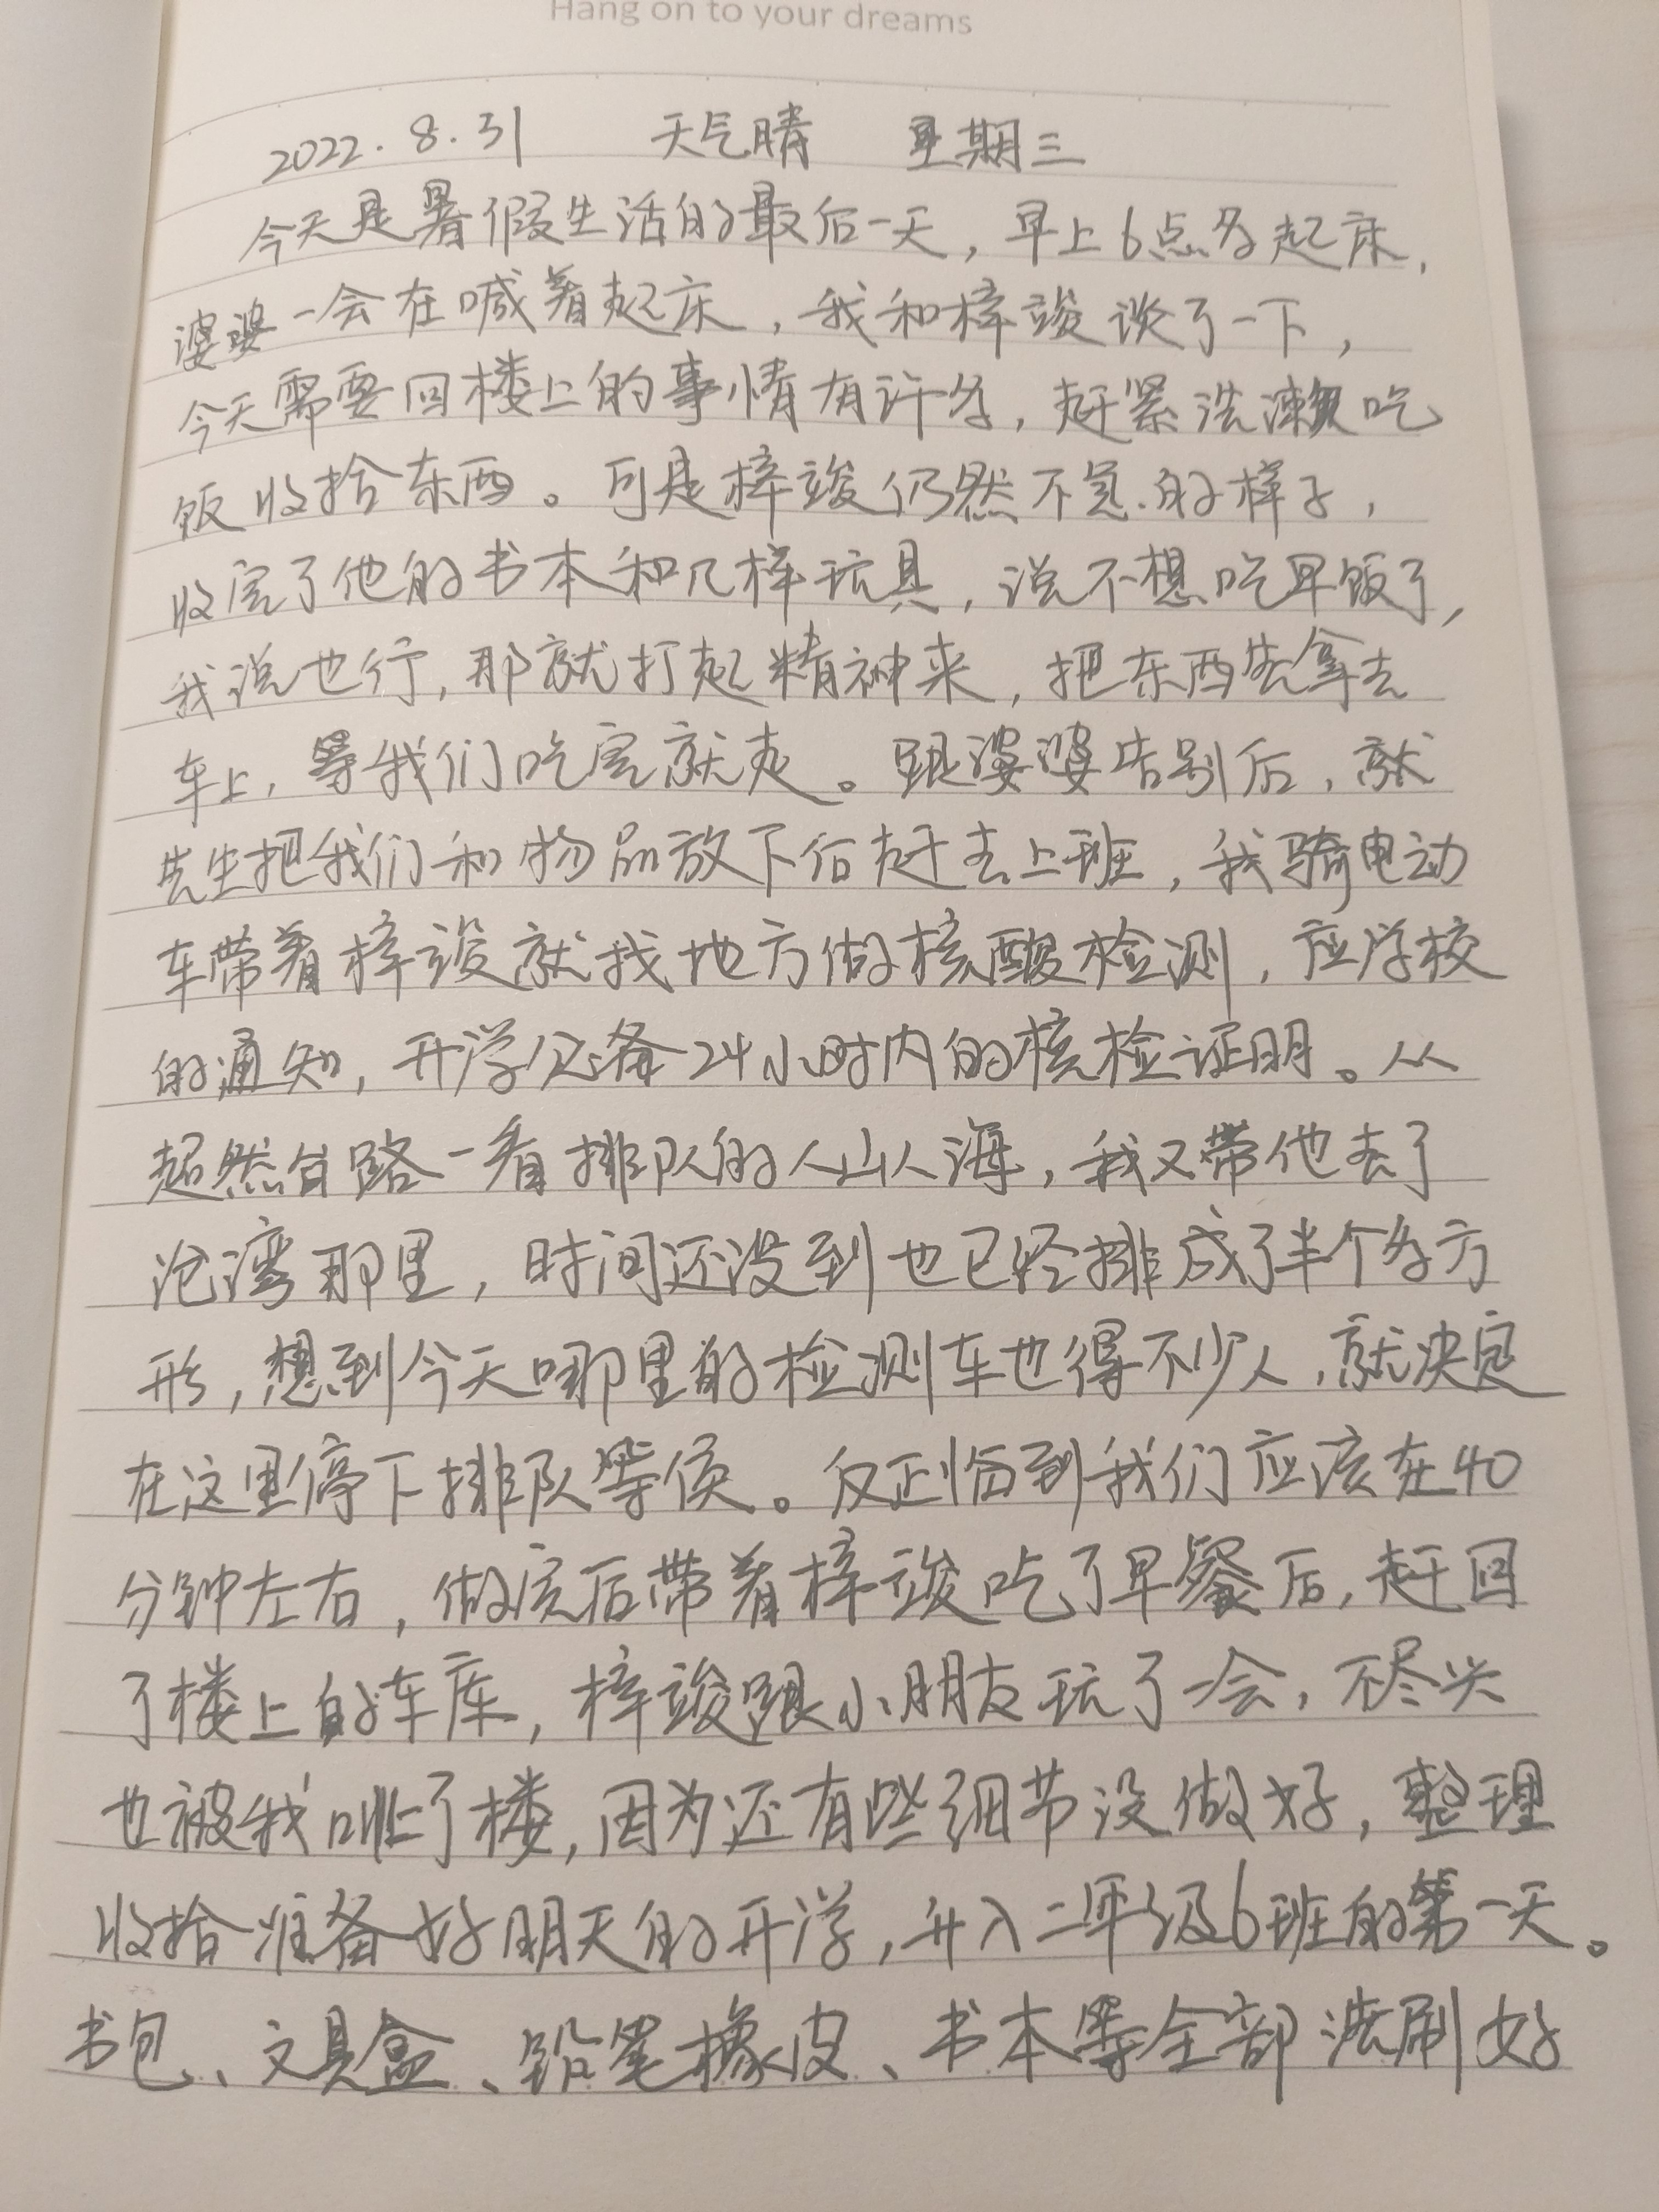 Hang on to your dreams
2022.8.31 天气晴 星期三
今天是暑假生活的最后一天，早上6点多起床，
婆婆一会在喊着起床，我和梓竣谈了一下，
今天需要回楼上的事情有许多，赶紧洗漱吃
饭收拾东西。可是梓竣仍然不急的样子，
收完了他的书本和几样玩具，说不想吃早饭了，
我说也行，那就打起精神来，把东西先拿去
车上，等我们吃完就走。跟婆婆告别后，就
先生把我们和物品放下后赶去上班，我骑电动
车带着梓竣就找地方做核酸检测，应学校
的通知，开学必备24小时内的核检证明。从
超然台路一看排队的人山人海，我又带他去了
沧湾那里，时间还没到也已经排成了半个多方
形，想到今天哪里的检测车也得不少人，就决定
在这里停下排队等侯。反正临到我们应该在40
分钟左右，做完后带着梓竣吃了早餐后，赶回
了楼上的车库，梓竣跟小朋友玩了一会，不尽兴
也被我叫上了楼，因为还有些细节没做好，整理
收拾准备好明天的开学，升入二年级6班的第一天。
书包、文具盒、铅笔橡皮、书本等全部洗刷好